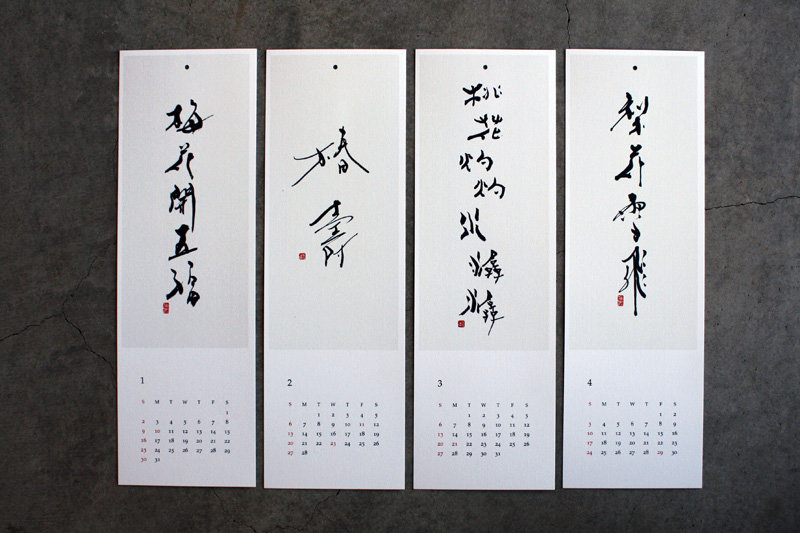 梅花開五福
1
S M T W T F S
1
2 3 4 5 6 7 8
9 10 11 12 13 14 15
16 17 18 19 20 21 22
23 24 25 26 27 28 29
30 31
椿壽
2
S M T W T F S
1 2 3 4 5
6 7 8 9 10 11 12
13 14 15 16 17 18 19
20 21 22 23 24 25 26
27 28
桃花灼灼水
3
S M T W T F S
1 2 3 4 5
6 7 8 9 10 11 12
13 14 15 16 17 18 19
20 21 22 23 24 25 26
27 28 29 30 31
梨花雪飛
4
S M T W T F S
1 2
3 4 5 6 7 8 9
10 11 12 13 14 15 16
17 18 19 20 21 22 23
24 25 26 27 28 29 30